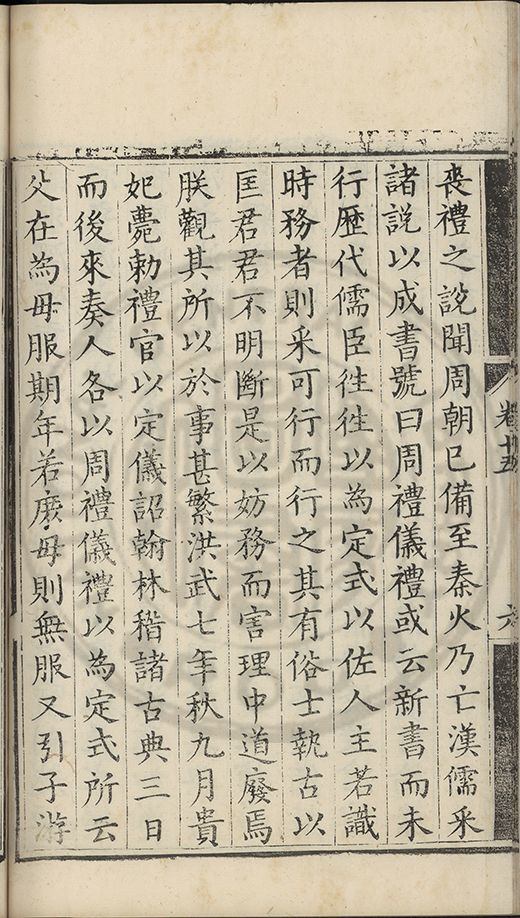 喪禮之說聞周朝已備至秦火乃亡漢儒采
諸說以成書號曰周禮儀禮或云新書而未
行歷代儒臣徃徃以為定式以佐人主若識
時務者則采可行而行之其有俗士執古以
匡君君不明斷是以妨務而害理中道廢焉
朕觀其所以於事甚繁洪武七年秋九月貴
妃薨勅禮官以定儀詔翰林稽諸古典三日
而後來奏人各以周禮儀禮以為定式所云
父在為毋服期年若庶毋則無服又引子游
卷十五
六